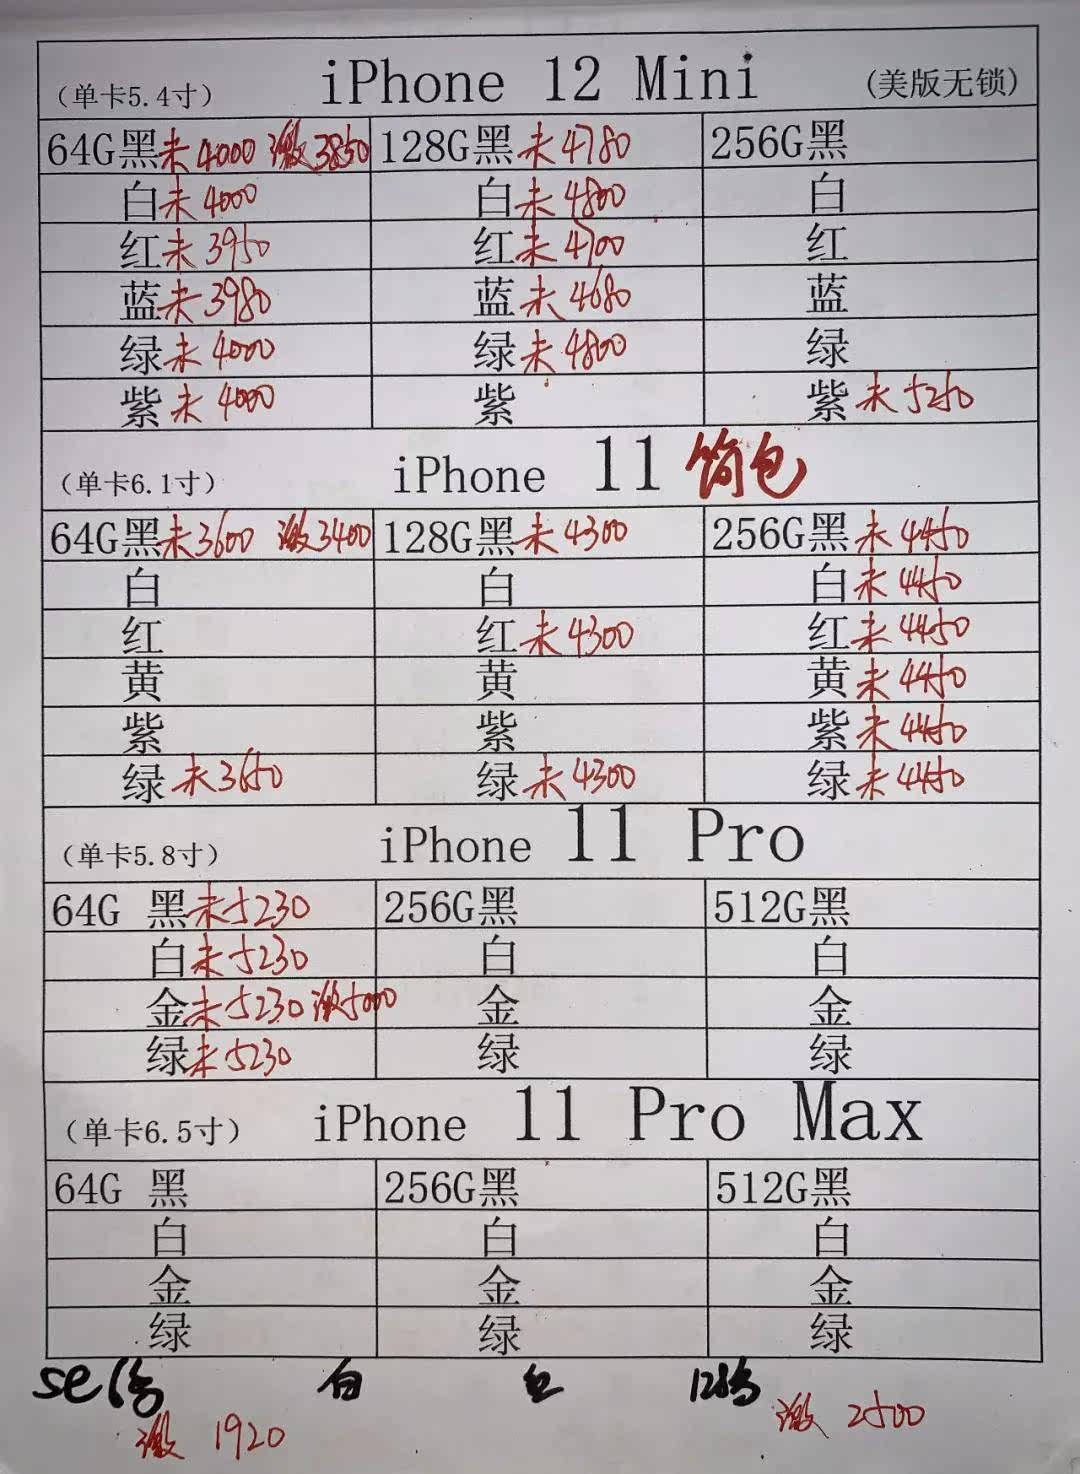 （单卡5.4寸） iPhone 12 Mini (美版无锁)
64G黑未4000 激3850 128G黑未4780 256G黑
白未4000 白未4800 白
红未3950 红未4700 红
蓝未3980 蓝未4680 蓝
绿未4000 绿未4800 绿
紫未4000 紫 紫未5250
（单卡6.1寸） iPhone 11 简包
64G黑未3600 激3400 128G黑未4300 256G黑未4450
白 白 白未4450
红 红未4300 红未4450
黄 黄 黄未4450
紫 紫 紫未4450
绿未3650 绿未4300 绿未4450
（单卡5.8寸） iPhone 11 Pro
64G 黑未5230 256G黑 512G黑
白未5230 白 白
金未5230 激5000 金 金
绿未5230 绿 绿
（单卡6.5寸） iPhone 11 Pro Max
64G 黑 256G黑 512G黑
白 白 白
金 金 金
绿 绿 绿
se 白 红 128
激 1920 激 2500